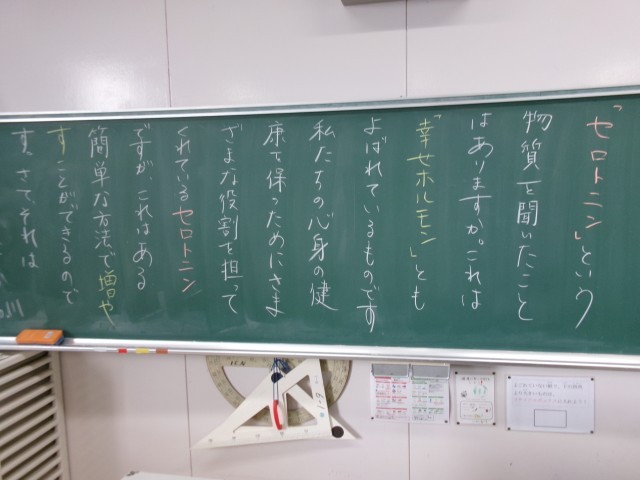 「セロトニン」という
物質を聞いたこと
はありますか。これは
「幸せホルモン」とも
よばれているものです
私たちの心身の健
康を保つためにさま
ざまな役割を担って
くれているセロトニン
ですが、これはある
簡単な方法で増や
すことができるので
す。さて、それは